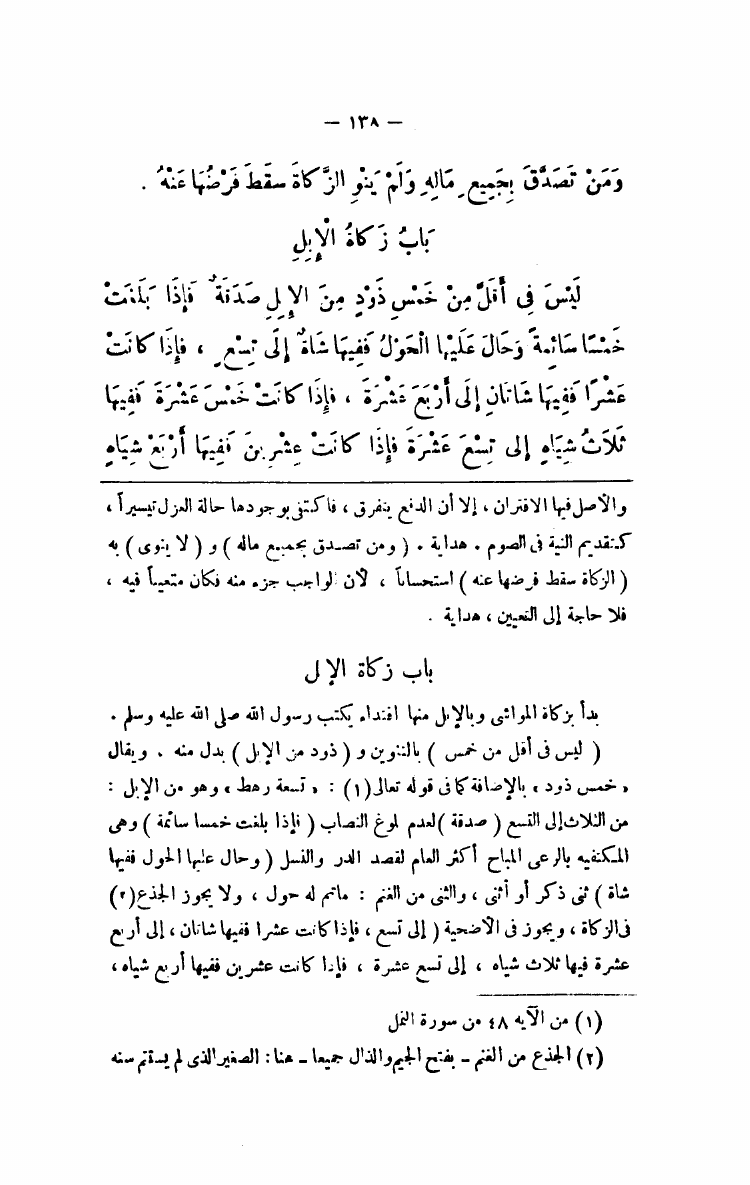 — ١٣٨ —
وَمَنْ تَصَدَّقَ بِجَمِيعِ مَالِهِ وَلَمْ يَنْوِ الزَّكَاةَ سَقَطَ فَرْضُهَا عَنْهُ .
بَابُ زَكَاةُ الْإِبِلِ
لَيْسَ فِى أَقَلَّ مِنْ خَمْسِ ذَوْدٍ مِنَ الإِبِلِ صَدَقَةٌ فَإِذَا بَلَغَتْ
خَمْسًا سَائِمَةً وَحَالَ عَلَيْهَا الْحَوْلُ فَفِيهَا شَاةٌ إِلَى تِسْعٍ ، فَإِذَا كَانَتْ
عَشْرًا فَفِيهَا شَاتَانِ إِلَى أَرْبَعَ عَشْرَةَ ، فَإِذَا كَانَتْ خَمْسَ عَشْرَةَ فَفِيهَا
ثَلَاثُ شِيَاهٍ إِلى تِسْعَ عَشْرَةَ فَإِذَا كَانَتْ عِشْرِينَ فَفِيهَا أَرْبَعُ شِيَاهٍ
والأصل فيها الاقتران ، إلا أن الدفع يتفرق ، فاكتفى بوجودها حالة العزل تيسيراً ،
كتقديم النية فى الصوم . هداية . ( ومن تصدق بجميع ماله ) و ( لا ينوى ) به
( الزكاة سقط فرضها عنه ) استحساناً ، لأن الواجب جزء منه فكان متعيناً فيه ،
فلا حاجة إلى التعيين ، هداية .
باب زكاة الإبل
بدأ بزكاة المواشى وبالإبل منها اقتداء بكتب رسول الله صلى الله عليه وسلم .
( ليس فى أقل من خمس ) بالتنوين و ( ذود من الإبل ) بدل منه . ويقال
« خمس ذود » بالإضافة كما فى قوله تعالى(١) : « تسعة رهط » وهو من الإبل :
من الثلاث إلى التسع ( صدقة ) لعدم بلوغ النصاب ( فإذا بلغت خمسا سائمة ) وهى
المكتفيه بالرعى المباح أكثر العام لقصد الدر والنسل ( وحال عليها الحول ففيها
شاة ) ثنى ذكر أو أنثى ، والثنى من الغنم : ماتم له حول ، ولا يجوز الجذع(٢)
فى الزكاة ، ويجوز فى الأضحية ( إلى تسع ، فإذا كانت عشرا ففيها شاتان ، إلى أربع
عشرة فيها ثلاث شياه ، إلى تسع عشرة ، فإذا كانت عشرين ففيها أربع شياه ،
(١) من الآيه ٤٨ من سورة النمل
(٢) الجذع من الغنم – بفتح الجيم والذال جميعا – هنا : الصغير الذى لم يستتم سنه